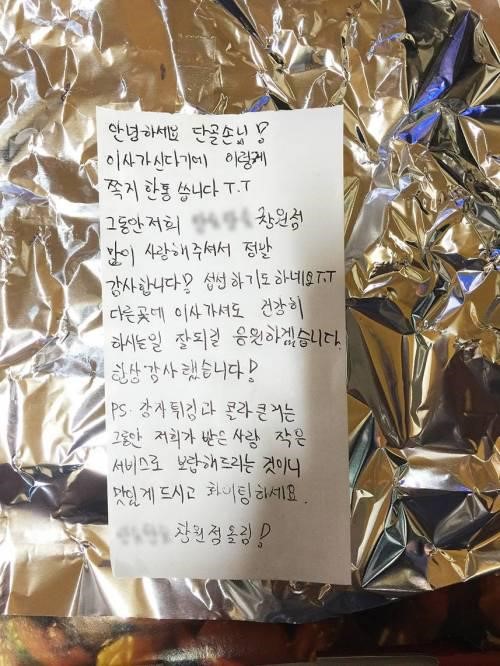 안녕하세요 단골손님!
이사가신다기에 이렇게
쪽지 한통 씁니다 T.T
그동안 저희 창원점
많이 사랑해주셔서 정말
감사합니다! 섭섭하기도하네요T.T
다른곳에 이사가셔도 건강히
하시는일 잘되길 응원하겠습니다.
항상감사했습니다!
PS. 감자튀김과 콜라큰거는
그동안 저희가 받은사랑 작은
서비스로 보답해드리는 것이니
맛있게드시고 화이팅하세요.
창원점올림!